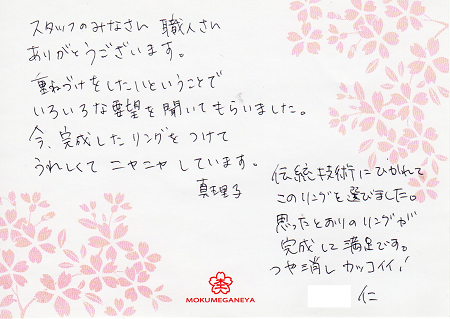 スタッフのみなさん 職人さん
ありがとうございます。
重ねづけをしたいということで
いろいろな要望を聞いてもらいました。
今、完成したリングをつけて
うれしくて ニヤニヤ しています。
真理子
伝統技術にひかれて
このリングを選びました。
思ったとおりのリングが
完成して満足です。
つや消し カッコイイ!
仁
MOKUMEGANEYA